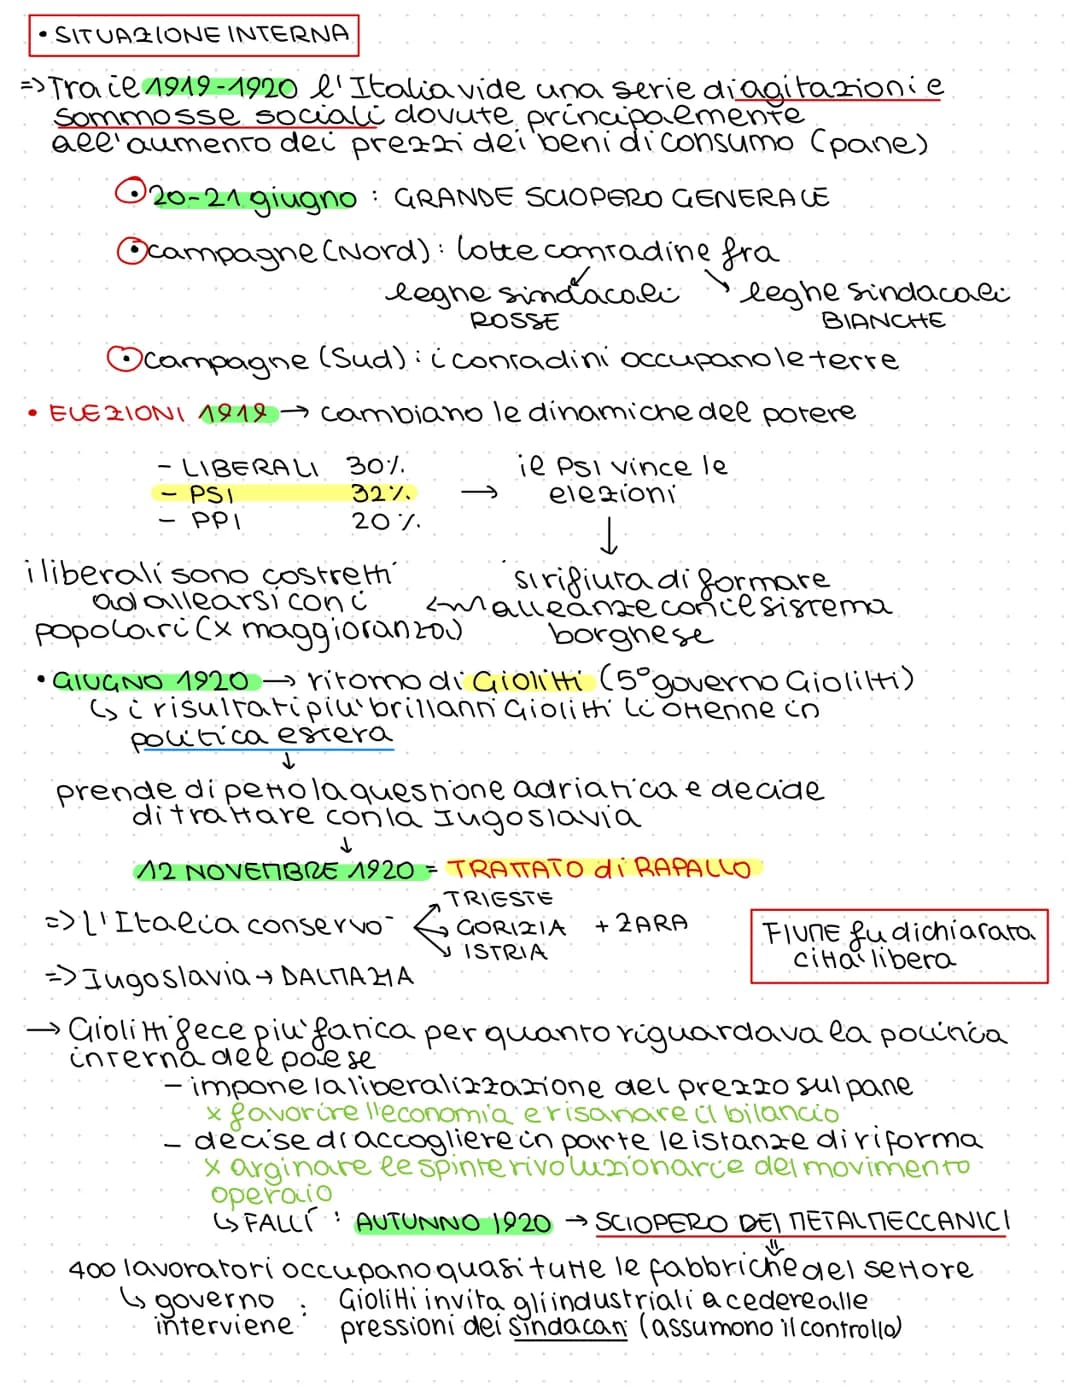 • SITUAZIONE INTERNA
=> Tra il 1919-1920 l'Italia vide una serie di agitazioni e
sommosse sociali dovute principalmente
all'aumento dei prezzi dei beni di consumo (pane)
20-21 giugno : GRANDE SCIOPERO GENERALE
campagne (Nord) : lotte contadine fra
leghe sindacali leghe sindacali
ROSSE BIANCHE
campagne (Sud) : i contadini occupano le terre
• ELEZIONI 1919 → cambiano le dinamiche del potere
- LIBERALI 30% il PSI vince le
- PSI 32% → elezioni
- PPI 20% ↓
i liberali sono costretti si rifiuta di formare
ad allearsi con i alleanze con il sistema
popolari (x maggioranza) borghese
• GIUGNO 1920 → ritorno di Giolitti (5° governo Giolitti)
↳ i risultati piu' brillanti Giolitti li ottenne in
politica estera
↓
prende di petto la questione adriatica e decide
di trattare con la Iugoslavia
↓
12 NOVEMBRE 1920 = TRATTATO di RAPALLO
TRIESTE
=> l'Italia conservo' GORIZIA + ZARA FIUME fu dichiarata
ISTRIA citta' libera
=> Iugoslavia → DALMAZIA
→ Giolitti fece piu' fatica per quanto riguardava la politica
interna del paese
- impone la liberalizzazione del prezzo sul pane
x favorire l'economia e risanare il bilancio
- decise di accogliere in parte le istanze di riforma
x arginare le spinte rivoluzionarie del movimento
operaio
↳ FALLÍ : AUTUNNO 1920 → SCIOPERO DEI METALMECCANICI
400 lavoratori occupano quasi tutte le fabbriche del settore
↳ governo : Giolitti invita gli industriali a cedere alle
interviene pressioni dei sindacati (assumono il controllo)